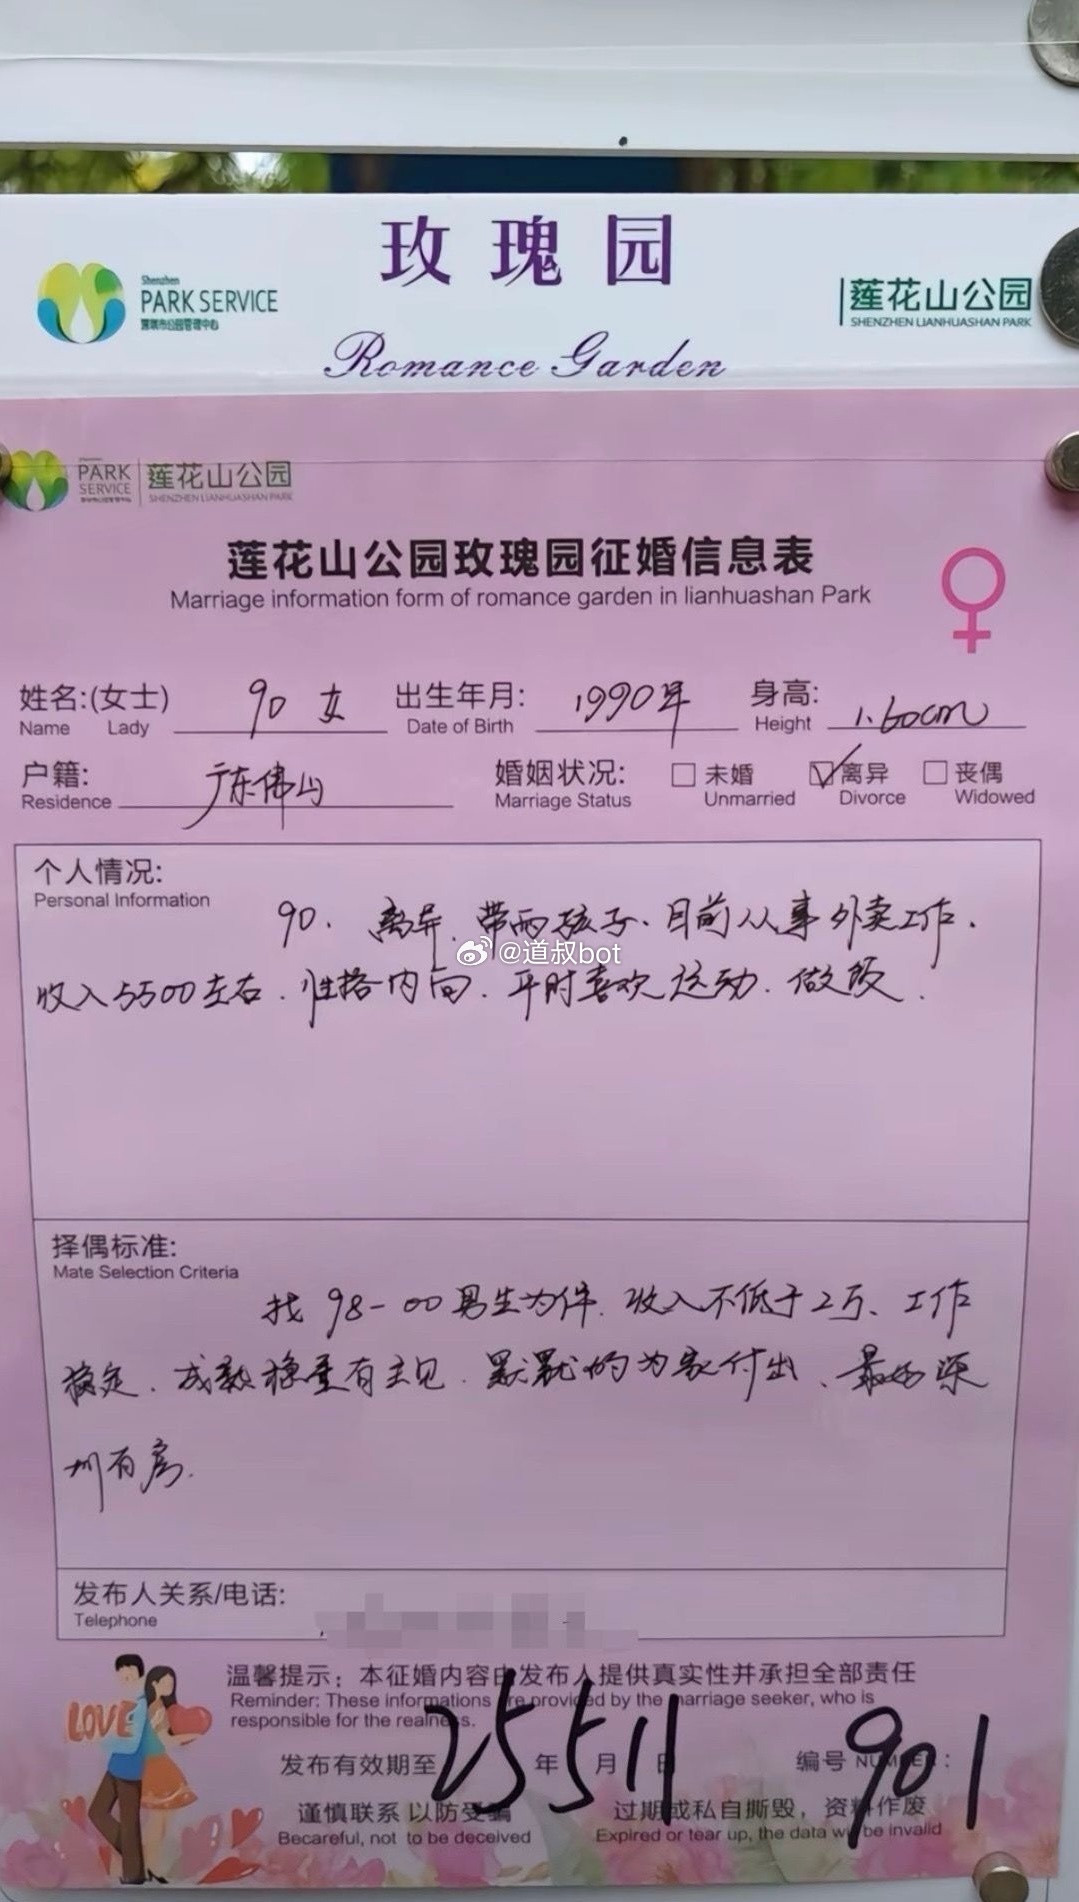 玫瑰园
Shenzhen
PARK SERVICE
深圳市公园管理中心
莲花山公园
SHENZHEN LIANHUASHAN PARK
Romance Garden
PARK
SERVICE
莲花山公园
SHENZHEN LIANHUASHAN PARK
莲花山公园玫瑰园征婚信息表
Marriage information form of romance garden in lianhuashan Park
姓名:(女士) 90 女 出生年月: 1990年 身高: 1.60cm
Name Lady Date of Birth Height
户籍: 广东佛山 婚姻状况: 未婚 离异 丧偶
Residence Marriage Status Unmarried Divorce Widowed
个人情况:
Personal Information
90. 离异. 带两孩子. 目前从事外卖工作.
@道叔bot
收入5500左右. 性格内向. 平时喜欢运动. 做饭.
择偶标准:
Mate Selection Criteria
找98-00男生为伴. 收入不低于2万、工作
稳定. 成熟稳重有主见. 默默的为家付出、最好深
圳有房.
发布人关系/电话:
Telephone
温馨提示：本征婚内容由发布人提供真实性并承担全部责任
Reminder: These informations are provided by the marriage seeker, who is
responsible for the realness.
发布有效期至 25 年 5 月 11 日 编号 NUMBER: 901
谨慎联系 以防受骗 过期或私自撕毁，资料作废
Becareful, not to be deceived Expired or tear up, the data will be invalid
LOVE